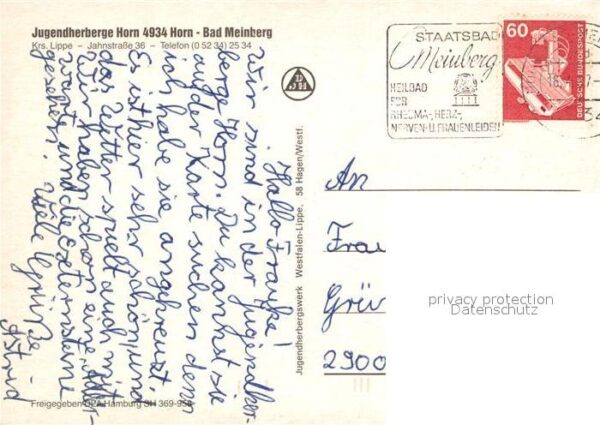 Jugendherberge Horn 4934 Horn - Bad Meinberg
Krs. Lippe - Jahnstraße 36 - Telefon (0 52 34) 25 34
Hallo Frauke!
Wir sind in der Jugendher-
berge Horn. Du kannst sie
auf der Karte suchen denn
ich habe sie angekreuzt.
Es ist hier sehr schön und
das Wetter spielt auch mit.
Wir haben schon eine
und die Externsteine
gesehen. Viele Grüße
Astrid
Freigegeben Hamburg SH 369-956
Jugendherbergswerk Westfalen-Lippe, 58 Hagen/Westf.
DJH
STAATSBAD
Meinberg
HEILBAD
FÜR
RHEUMA-, HERZ-,
NERVEN- U. FRAUENLEIDEN
60
DEUTSCHE BUNDESPOST
An
Frau
Grü
2900
privacy protection
Datenschutz